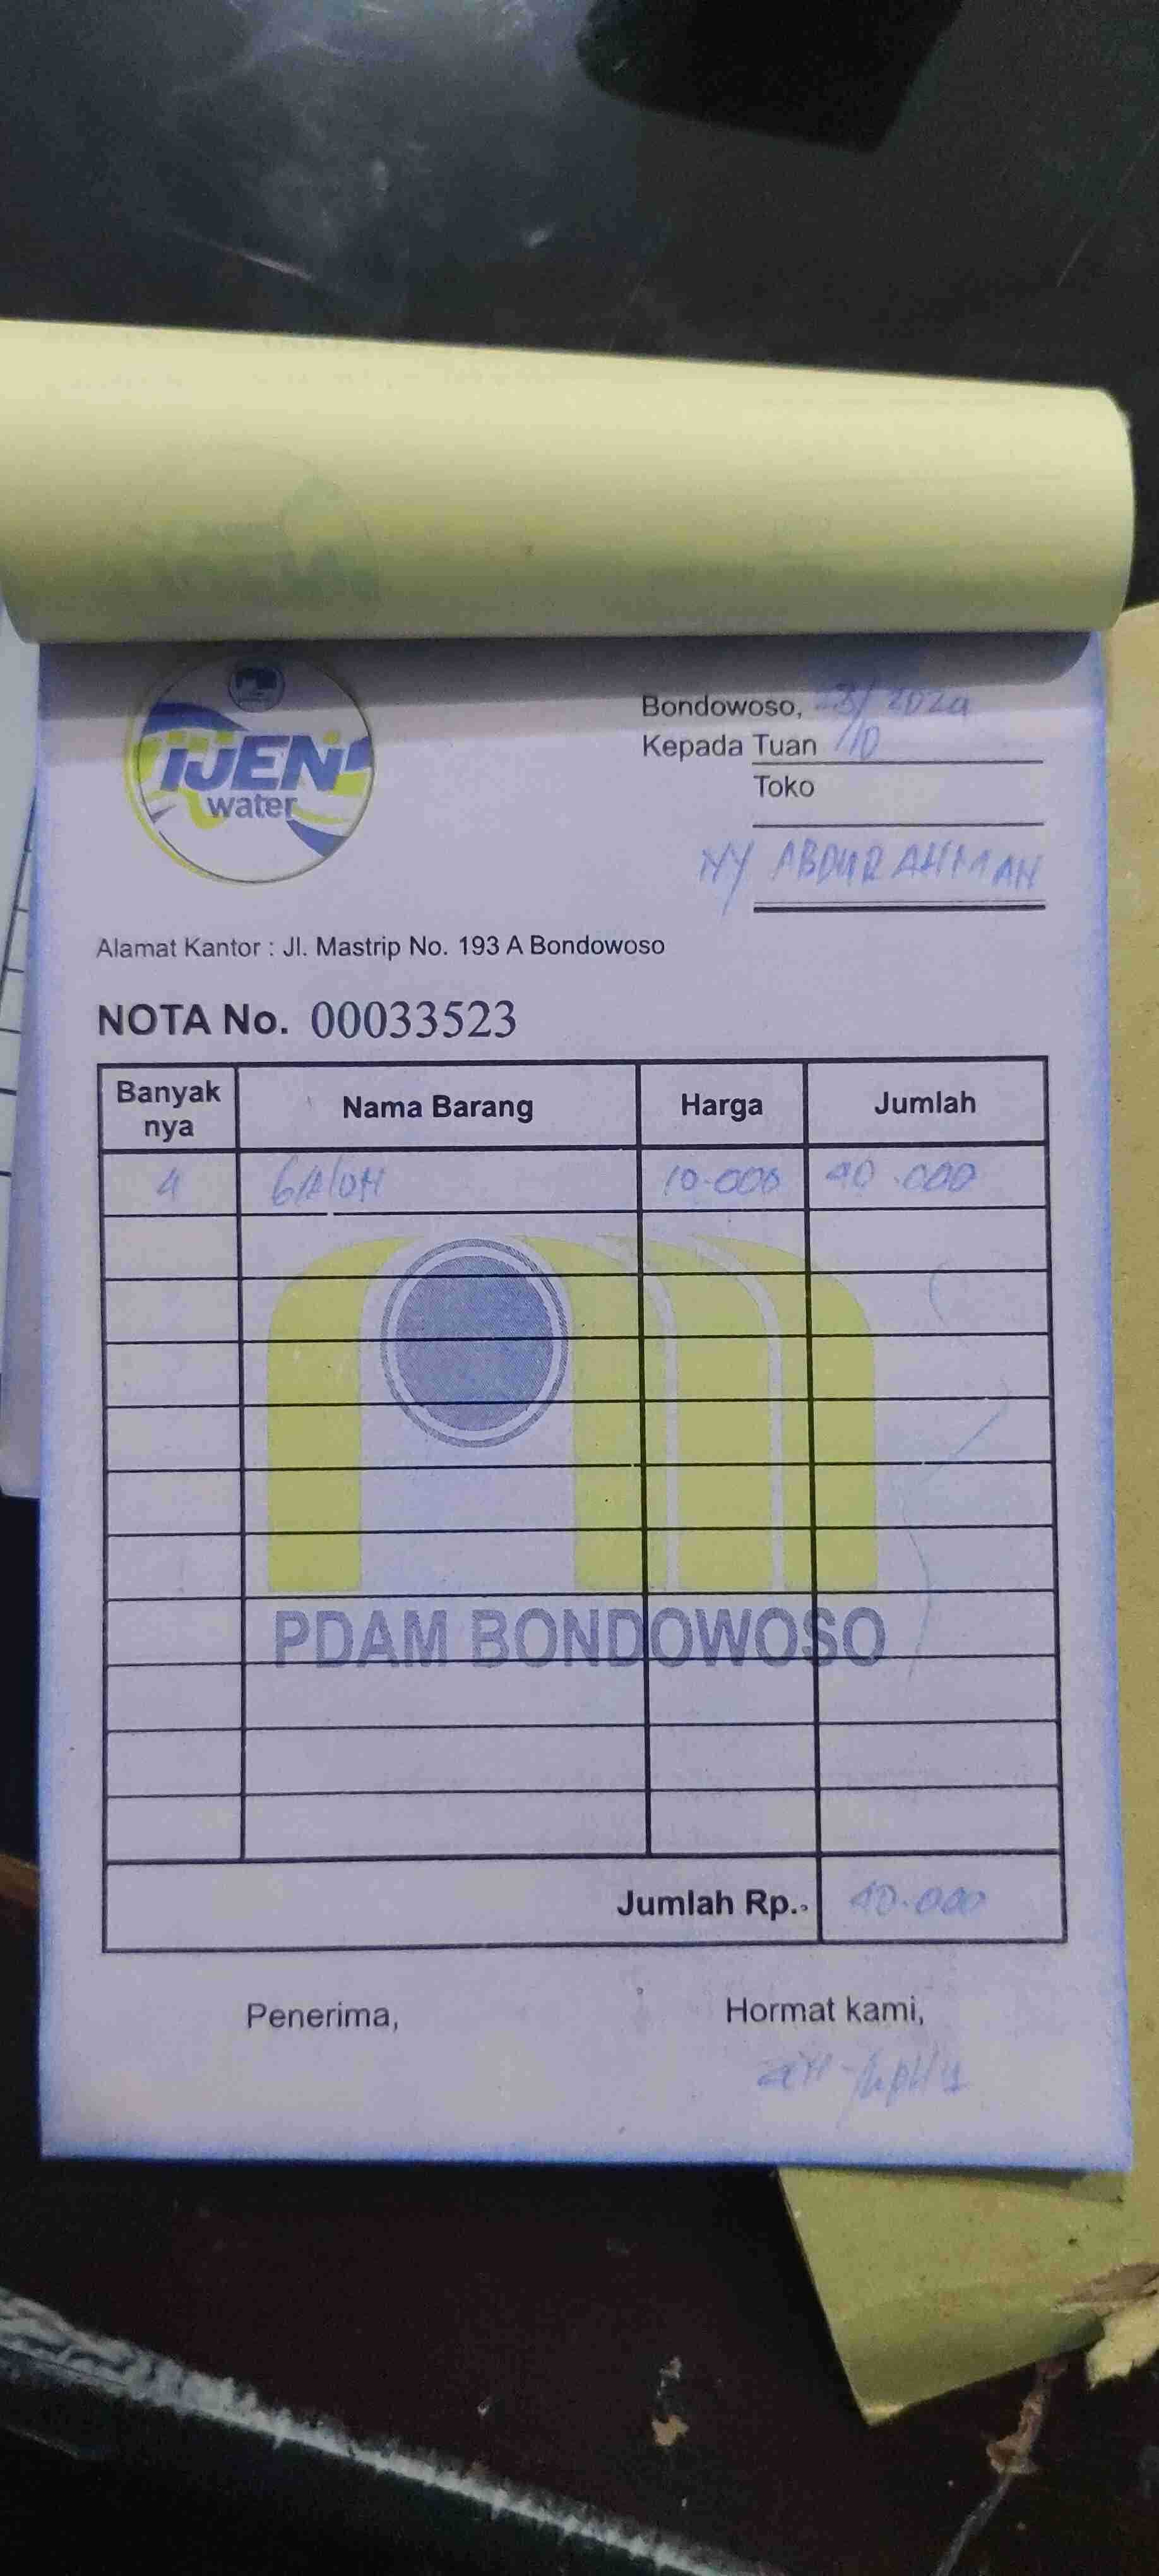 IJEN
water
Bondowoso, 28/10 2024
Kepada Tuan
Toko
NY ABDURAHMAN
Alamat Kantor : Jl. Mastrip No. 193 A Bondowoso
NOTA No. 00033523
Banyak nya Nama Barang Harga Jumlah
4 GALON 10.000 40.000
PDAM BONDOWOSO
Jumlah Rp. 40.000
Penerima, Hormat kami,